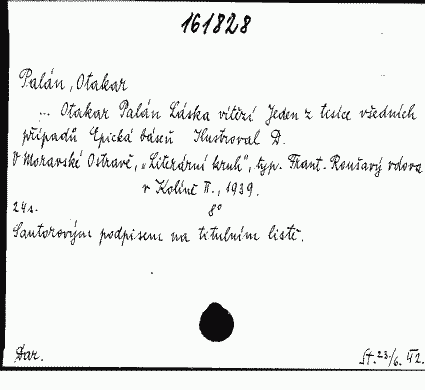 161828
Palán, Otakar
... Otakar Palán Láska vítězí Jeden z tisíce všedních
případů Epická báseň Ilustroval D.
V Moravské Ostravě, „Literární kruh", typ. Frant. Roušavý vdova
v Kolíně II., 1939.
24 s. 8°
S autorovým podpisem na titulním listě.
Dar. St. 23/6. 42.